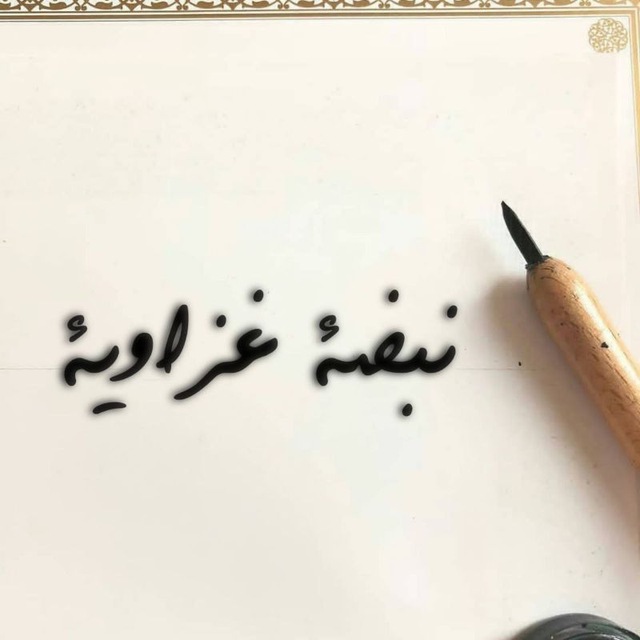 نبضة غزاوية